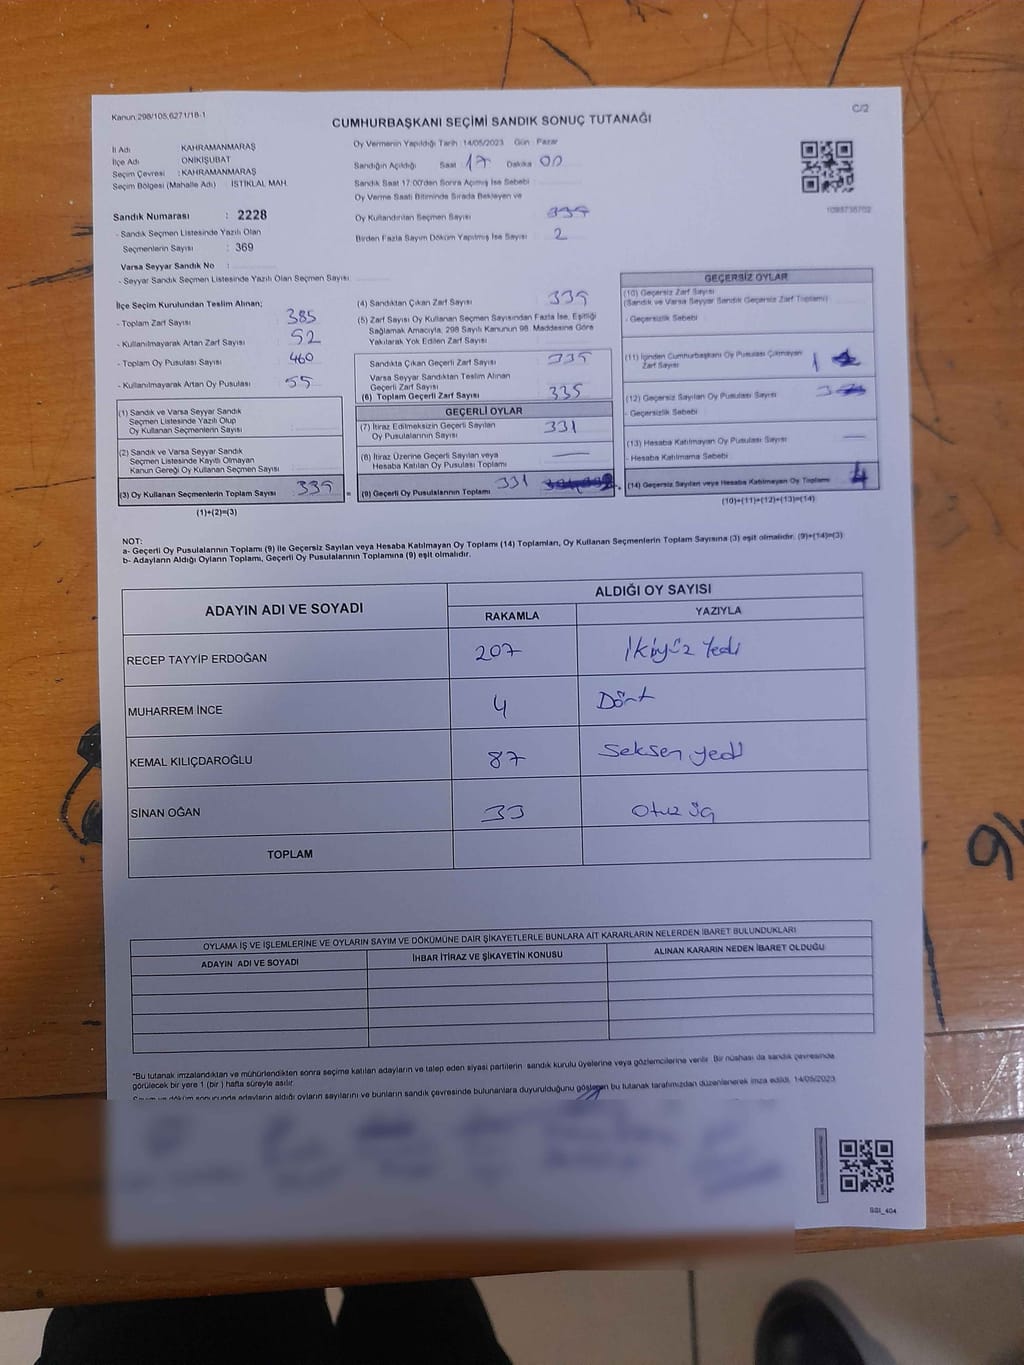 Kanun:298/105;6271/18-1
C/2
CUMHURBAŞKANI SEÇİMİ SANDIK SONUÇ TUTANAĞI
İl Adı : KAHRAMANMARAŞ
İlçe Adı : ONİKİŞUBAT
Seçim Çevresi : KAHRAMANMARAŞ
Seçim Bölgesi (Mahalle Adı) : İSTİKLAL MAH.
Sandık Numarası : 2228
- Sandık Seçmen Listesinde Yazılı Olan
Seçmenlerin Sayısı : 369
Varsa Seyyar Sandık No :
- Seyyar Sandık Seçmen Listesinde Yazılı Olan Seçmen Sayısı
Oy Vermenin Yapıldığı Tarih : 14/05/2023 Gün : Pazar
Sandığın Açıldığı Saat 17 Dakika 00
Sandık Saat 17:00'den Sonra Açılmış İse Sebebi
Oy Verme Saati Bitiminde Sırada Bekleyen ve
Oy Kullandırılan Seçmen Sayısı
Birden Fazla Sayım Döküm Yapılmış İse Sayısı 2
İlçe Seçim Kurulundan Teslim Alınan;
- Toplam Zarf Sayısı 385
- Kullanılmayarak Artan Zarf Sayısı 52
- Toplam Oy Pusulası Sayısı 460
- Kullanılmayarak Artan Oy Pusulası 55
(1) Sandık ve Varsa Seyyar Sandık
Seçmen Listesinde Yazılı Olup
Oy Kullanan Seçmenlerin Sayısı
(2) Sandık ve Varsa Seyyar Sandık
Seçmen Listesinde Kayıtlı Olmayan
Kanun Gereği Oy Kullanan Seçmen Sayısı
(3) Oy Kullanan Seçmenlerin Toplam Sayısı 335
(1)+(2)=(3)
(4) Sandıktan Çıkan Zarf Sayısı 335
(5) Zarf Sayısı Oy Kullanan Seçmen Sayısından Fazla İse, Eşitliği
Sağlamak Amacıyla, 298 Sayılı Kanunun 98. Maddesine Göre
Yakılarak Yok Edilen Zarf Sayısı
Sandıkta Çıkan Geçerli Zarf Sayısı 335
Varsa Seyyar Sandıktan Teslim Alınan
Geçerli Zarf Sayısı
(6) Toplam Geçerli Zarf Sayısı 335
GEÇERLİ OYLAR
(7) İtiraz Edilmeksizin Geçerli Sayılan
Oy Pusulalarının Sayısı 331
(8) İtiraz Üzerine Geçerli Sayılan veya
Hesaba Katılan Oy Pusulası Toplamı —
(9) Geçerli Oy Pusulalarının Toplamı 331
GEÇERSİZ OYLAR
(10) Geçersiz Zarf Sayısı
(Sandık ve Varsa Seyyar Sandık Geçersiz Zarf Toplamı)
- Geçersizlik Sebebi
(11) İçinden Cumhurbaşkanı Oy Pusulası Çıkmayan
Zarf Sayısı 1
(12) Geçersiz Sayılan Oy Pusulası Sayısı 3
- Geçersizlik Sebebi
(13) Hesaba Katılmayan Oy Pusulası Sayısı —
- Hesaba Katılmama Sebebi
(14) Geçersiz Sayılan veya Hesaba Katılmayan Oy Toplamı 4
(10)+(11)+(12)+(13)=(14)
NOT:
a- Geçerli Oy Pusulalarının Toplamı (9) ile Geçersiz Sayılan veya Hesaba Katılmayan Oy Toplamı (14) Toplamları, Oy Kullanan Seçmenlerin Toplam Sayısına (3) eşit olmalıdır. (9)+(14)=(3)
b- Adayların Aldığı Oyların Toplamı, Geçerli Oy Pusulalarının Toplamına (9) eşit olmalıdır.
ADAYIN ADI VE SOYADI
ALDIĞI OY SAYISI
RAKAMLA YAZIYLA
RECEP TAYYİP ERDOĞAN 207 İkiyüz Yedi
MUHARREM İNCE 4 Dört
KEMAL KILIÇDAROĞLU 87 Seksen yedi
SİNAN OĞAN 33 Otuz üç
TOPLAM
OYLAMA İŞ VE İŞLEMLERİNE VE OYLARIN SAYIM VE DÖKÜMÜNE DAİR ŞİKAYETLERLE BUNLARA AİT KARARLARIN NELERDEN İBARET BULUNDUKLARI
ADAYIN ADI VE SOYADI İHBAR İTİRAZ VE ŞİKAYETİN KONUSU ALINAN KARARIN NEDEN İBARET OLDUĞU
*Bu tutanak imzalandıktan ve mühürlendikten sonra seçime katılan adayların ve talep eden siyasi partilerin sandık kurulu üyelerine veya gözlemcilerine verilir. Bir nüshası da sandık çevresinde
görülecek bir yere 1 (bir) hafta süreyle asılır.
Sayım ve döküm sonucunda adayların aldığı oyların sayılarını ve bunların sandık çevresinde bulunanlara duyurulduğunu gösteren bu tutanak tarafımızdan düzenlenerek imza edildi. 14/05/2023